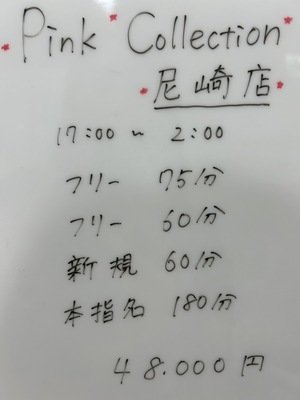 Pink Collection
尼崎店
17:00 ~ 2:00
フリー 75分
フリー 60分
新規 60分
本指名 180分
48.000円